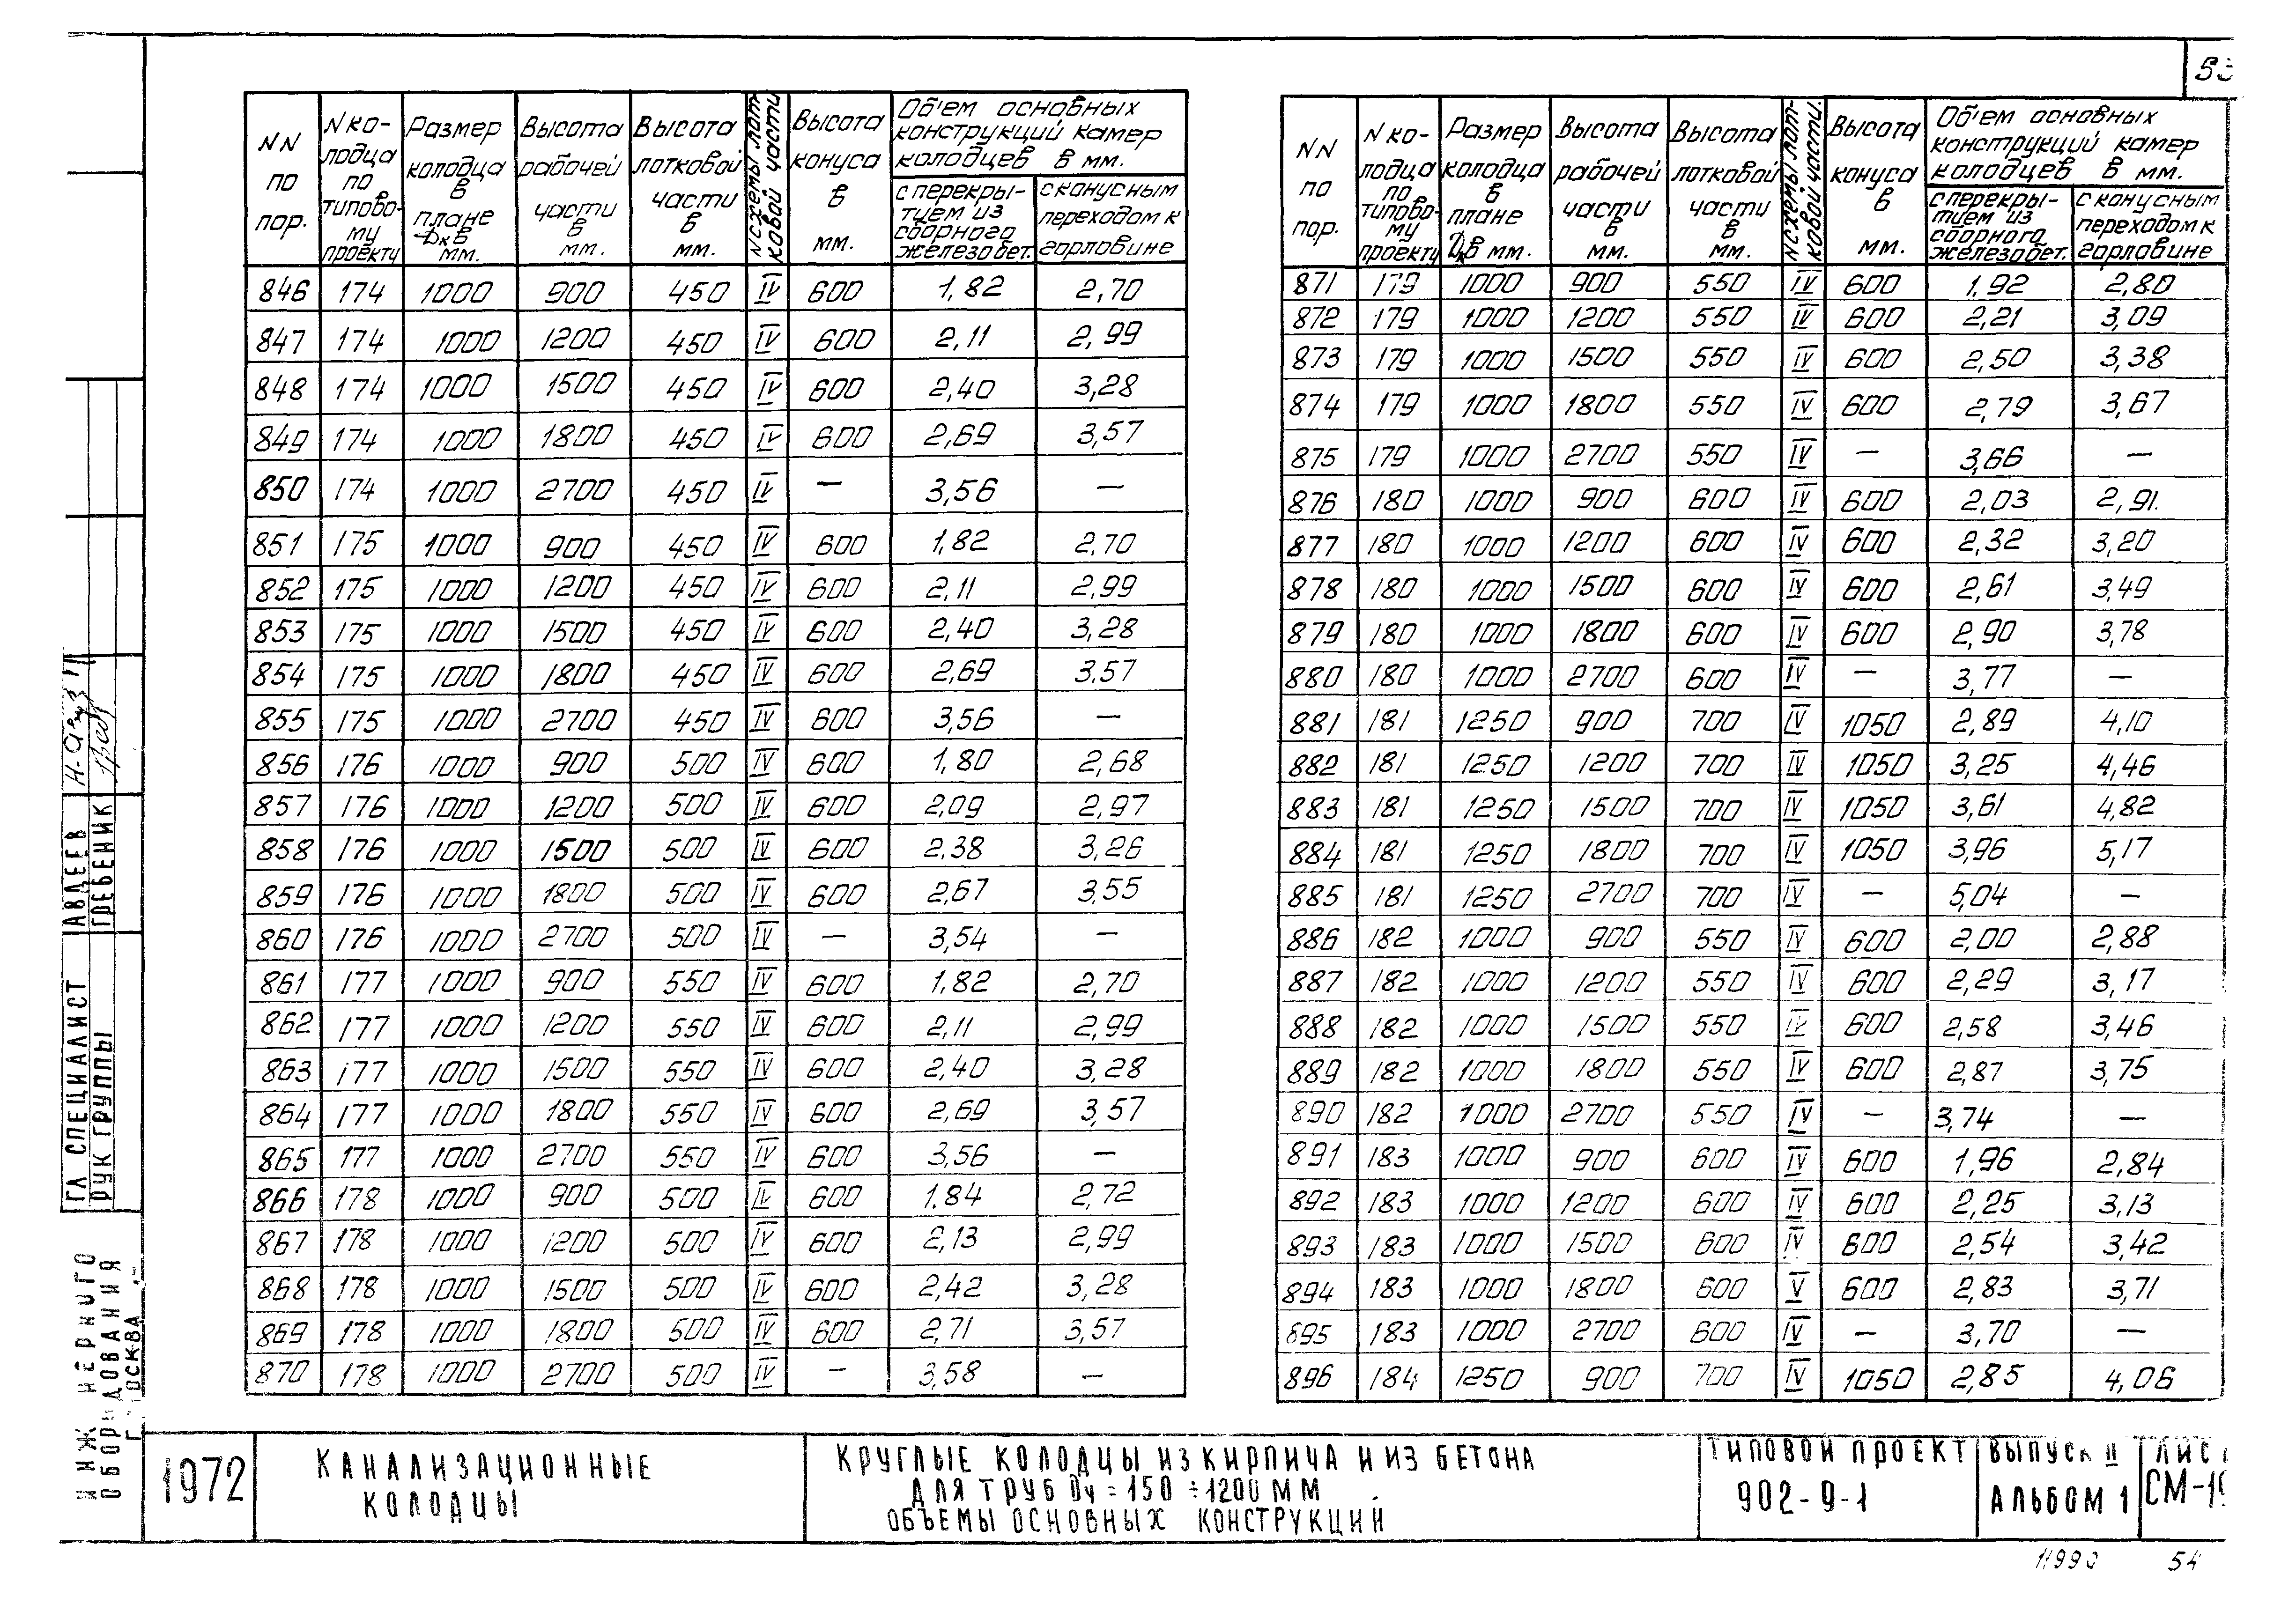 NN по пор. | N колодца по типовому проекту | Размер колодца в плане Dк в мм. | Высота рабочей части в мм. | Высота лотковой части в мм. | N схемы лотковой части | Высота конуса в мм. | Об'ем основных конструкций камер колодцев в мм. | с перекрытием из сборного железобет. | с конусным переходом к горловине
846 174 1000 900 450 IV 600 1,82 2,70
847 174 1000 1200 450 IV 600 2,11 2,99
848 174 1000 1500 450 IV 600 2,40 3,28
849 174 1000 1800 450 IV 600 2,69 3,57
850 174 1000 2700 450 IV — 3,56 —
851 175 1000 900 450 IV 600 1,82 2,70
852 175 1000 1200 450 IV 600 2,11 2,99
853 175 1000 1500 450 IV 600 2,40 3,28
854 175 1000 1800 450 IV 600 2,69 3,57
855 175 1000 2700 450 IV 600 3,56 —
856 176 1000 900 500 IV 600 1,80 2,68
857 176 1000 1200 500 IV 600 2,09 2,97
858 176 1000 1500 500 IV 600 2,38 3,26
859 176 1000 1800 500 IV 600 2,67 3,55
860 176 1000 2700 500 IV — 3,54 —
861 177 1000 900 550 IV 600 1,82 2,70
862 177 1000 1200 550 IV 600 2,11 2,99
863 177 1000 1500 550 IV 600 2,40 3,28
864 177 1000 1800 550 IV 600 2,69 3,57
865 177 1000 2700 550 IV 600 3,56 —
866 178 1000 900 500 IV 600 1.84 2,72
867 178 1000 1200 500 IV 600 2,13 2,99
868 178 1000 1500 500 IV 600 2,42 3,28
869 178 1000 1800 500 IV 600 2,71 3,57
870 178 1000 2700 500 IV — 3,58 —
53
NN по пор. | N колодца по типовому проекту | Размер колодца в плане Dк в мм. | Высота рабочей части в мм. | Высота лотковой части в мм. | N схемы лотковой части. | Высота конуса в мм. | Об'ем основных конструкций камер колодцев в мм. | с перекрытием из сборного железобет. | с конусным переходом к горловине
871 179 1000 900 550 IV 600 1,92 2,80
872 179 1000 1200 550 IV 600 2,21 3,09
873 179 1000 1500 550 IV 600 2,50 3,38
874 179 1000 1800 550 IV 600 2,79 3,67
875 179 1000 2700 550 IV — 3,66 —
876 180 1000 900 600 IV 600 2,03 2,91.
877 180 1000 1200 600 IV 600 2,32 3,20
878 180 1000 1500 600 IV 600 2,61 3,49
879 180 1000 1800 600 IV 600 2,90 3,78
880 180 1000 2700 600 IV — 3,77 —
881 181 1250 900 700 IV 1050 2,89 4,10
882 181 1250 1200 700 IV 1050 3,25 4,46
883 181 1250 1500 700 IV 1050 3,61 4,82
884 181 1250 1800 700 IV 1050 3,96 5,17
885 181 1250 2700 700 IV — 5,04 —
886 182 1000 900 550 IV 600 2,00 2,88
887 182 1000 1200 550 IV 600 2,29 3,17
888 182 1000 1500 550 IV 600 2,58 3,46
889 182 1000 1800 550 IV 600 2,87 3,75
890 182 1000 2700 550 IV — 3,74 —
891 183 1000 900 600 IV 600 1,96 2,84
892 183 1000 1200 600 IV 600 2,25 3,13
893 183 1000 1500 600 IV 600 2,54 3,42
894 183 1000 1800 600 V 600 2,83 3,71
895 183 1000 2700 600 IV — 3,70 —
896 184 1250 900 700 IV 1050 2,85 4,06
ГЛ СПЕЦИАЛИСТ АВДЕЕВ
РУК ГРУППЫ ГРЕБЕНИК
1972
КАНАЛИЗАЦИОННЫЕ
КОЛОДЦЫ
КРУГЛЫЕ КОЛОДЦЫ ИЗ КИРПИЧА И ИЗ БЕТОНА
ДЛЯ ТРУБ Dу = 150 ÷ 1200 ММ
ОБЪЕМЫ ОСНОВНЫХ КОНСТРУКЦИИ
ТИПОВОЙ ПРОЕКТ
902-9-1
ВЫПУСК II
АЛЬБОМ 1
ЛИС
СМ-19
54